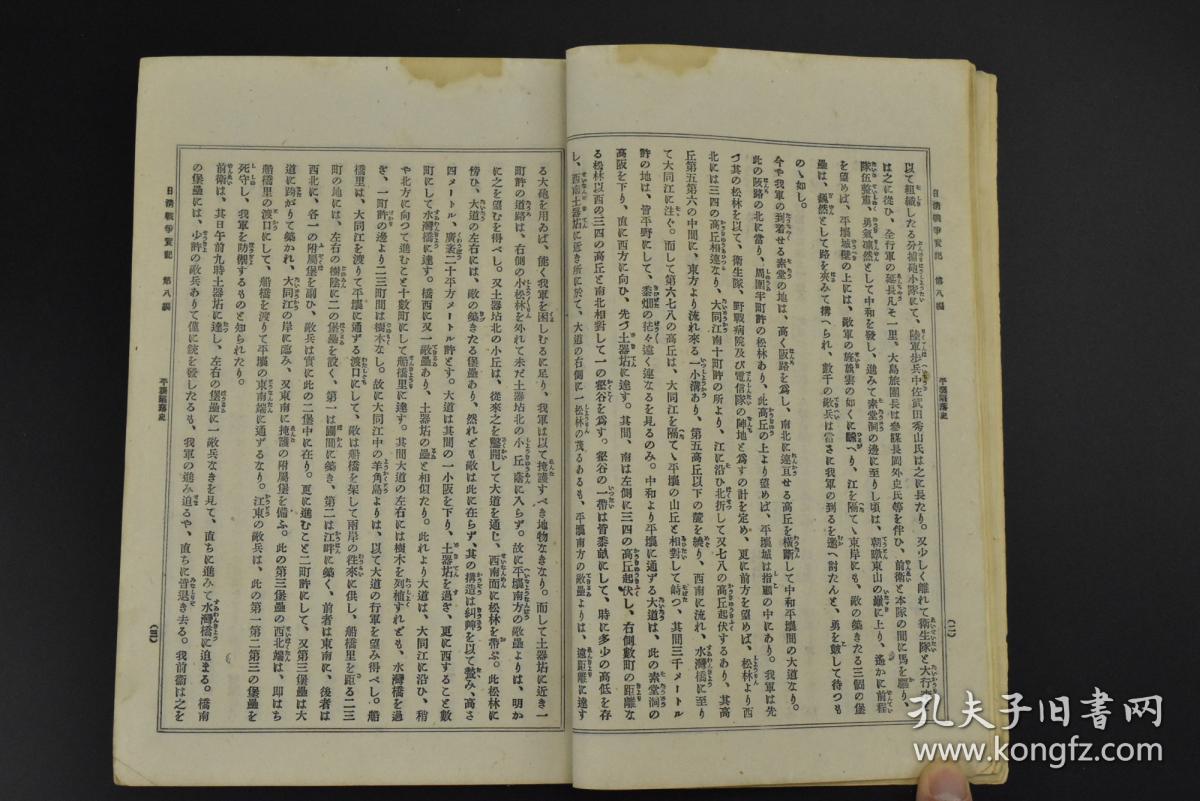 日清戰爭實記 第八編 平壤陷落記 (三)
以て組織したる分捕砲小隊にて、陸軍步兵中佐武田秀山氏は之に長たり。又少しく離れて衛生隊と大行李と
は之に從ひ、全行軍の延長凡そ一里、大島旅團長は參謀長岡外史氏等を伴ひ、前衛と本隊の間に馬を驅り、
隊伍整肅、勇氣凛然として中和を發し、進みて素堂洞の邊に至りし頃は、朝暾東山の巓に上り、遙かに前程
を望めば、平壤城壁の上には、敵軍の旌旗雲の如くに飜へり、江を隔てゝ東岸にも、敵の築きたる三個の堡
壘は、巍然として路を夾みて搆へられ、數千の敵兵は當さに我軍の到るを邀へ討たんと、勇を皷して待つも
のゝ如し。
今や我軍の到着せる素堂の地は、高く阪路を爲し、南北に連亘せる高丘を橫斷して中和平壤間の大道なり。
此の阪路の北に當り、周圍半町許の松林あり、此高丘の上より望めば、平壤城は指顧の中にあり。我軍は先
づ其の松林を以て、衛生隊、野戰病院及び電信隊の陣地と爲すの計を定め、更に前方を望めば、松林より西
北には三四の高丘相連なり、大同江南十町許の所より、江に沿ひ北折して又七八の高丘起伏するあり、其高
丘第五第六の中間に、東方より流れ來る一小溝あり、第五高丘以下の麓を繞り、西南に流れ、水灣橋に至り
て大同江に注ぐ。而して第六七八の高丘は、大同江を隔てゝ平壤の山丘と相對して峙つ、其間三千メートル
許の地は、皆平野にして、黍畑の茫々遠く連なるを見るのみ。中和より平壤に通ずる大道は、此の素堂洞の
高阪を下り、直に西方に向ひ、先づ土器坫に達す。其間、南は左側に三四の高丘起伏し、右側數町の距離な
る松林以西の三四の高丘と南北相對して一の壑谷を爲す。壑谷の一帶は皆黍畝にして、時に多少の高低を存
し、西南土器坫に近き所に於て、大道の右側に一松林の茂るあるも、平壤南方の敵壘よりは、遠距離に達す
る大砲を用ゐば、能く我軍を困しむるに足り、我軍は以て掩護すべき地物なきなり。而して土器坫に近き一
町許の道路は、右側の小松林を外れて未だ土器坫北の小丘蔭に入らず。故に平壤南方の敵壘よりは、明か
に之を望むを得べし。又土器坫北の小丘は、從來之を鑿開して大道を通じ、西南面に松林を帶ぶ。此松林に
傍ひ、大道の左右には、敵の築きたる堡壘あり、然れども敵は此に在らず、其の搆造は糾艸を以て盤み、高さ
四メートル、廣袤二十平方メートル許とす。大道は其間の一小阪を下り、土器坫を過ぎ、更に西すること數
町にして水灣橋に達す。橋西に又一敵壘あり、土器坫の壘と相似たり。此れより大道は、大同江に沿ひ、稍
や北方に向つて進むこと十數町にして船橋里に達す。其間大道の左右には樹木を列植すれども、水灣橋を過
ぎ、一町許の邊より二三町間は樹木なし。故に大同江中の羊角島よりは、以て大道の行軍を望み得べし。船
橋里は、大同江を渡りて平壤に通ずる渡口にして、敵は船橋を架して兩岸の往來に供し、船橋里を距る二三
町の地には、左右の樹陰に二の堡壘を設く、第一は園間に築き、第二は江畔に築く、前者は東南に、後者は
西北に、各一の附屬堡を副ひ、敵兵は實に此の二堡中に在り。更に進むこと二町許にして、又第三堡壘は大
道に跨がりて築かれ、大同江の岸に臨み、又東南に掩護の附屬堡を備ふ。此の第三堡壘の西北端は、即はち
船橋里の渡口にして、船橋を渡りて平壤の東南端に通ずるなり。江東の敵兵は、此の第一第二第三の堡壘を
死守し、我軍を防禦するものと知られたり。
前衛は、其日午前九時土器坫に達し、左右の堡壘に一敵兵なきを見て、直ちに進みて水灣橋に迫まる。橋南
の堡壘には、少許の敵兵ありて僅に銃を發したるも、我軍の進み迫るや、直ちに皆退き去る。我前衛は之を
日清戰爭實記 第八編 平壤陷落記 (四)
孔夫子旧书网
www.kongfz.com